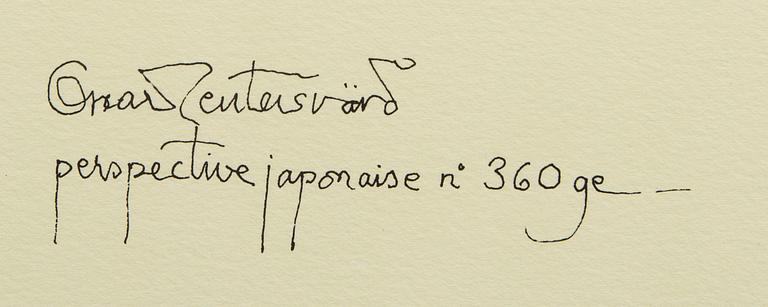 Oscar Reutersvärd
perspective japonaise n° 360 ge